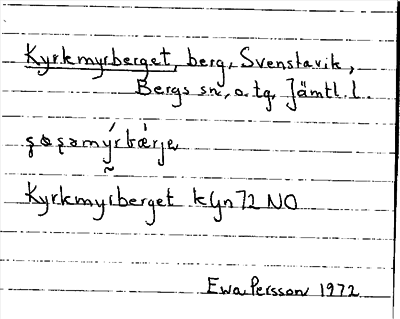 Kyrkmyrberget, berg, Svenstavik,
Bergs sn, o. tg, Jämtl. l.
Kyrkmyrberget k Gn 72 NO
Ewa Persson 1972